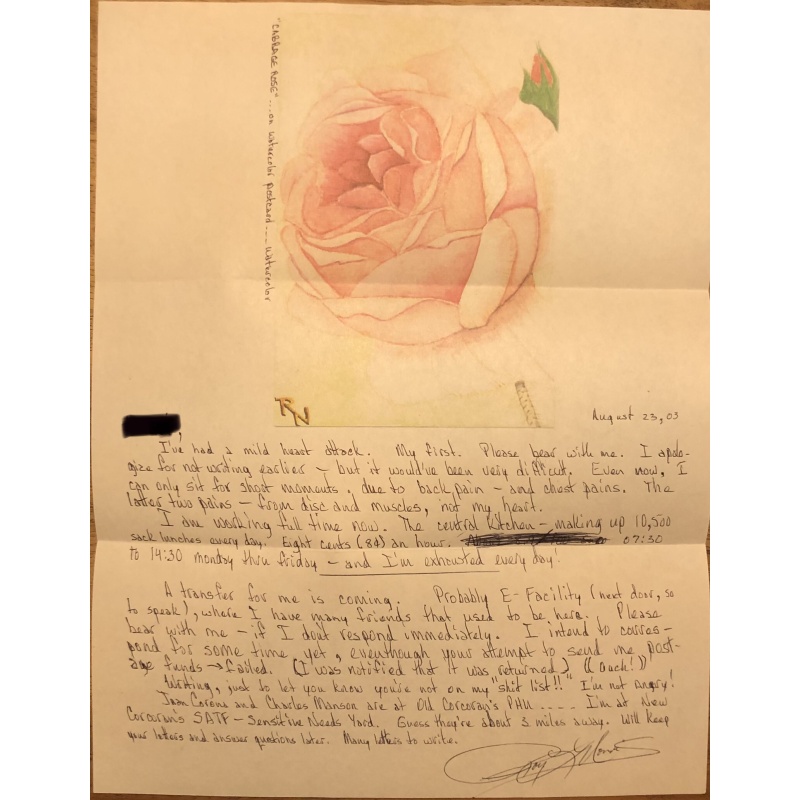 "CABBAGE ROSE" ... on watercolor postcard ... watercolor
RN
August 23, 03
I've had a mild heart attack. My first. Please bear with me. I apolo-
gize for not writing earlier – but it would've been very difficult. Even now, I
can only sit for short moments, due to back pain – and chest pains. The
latter two pains – from disc and muscles, not my heart.
I am working full time now. The central kitchen – making up 10,500
sack lunches every day. Eight cents (8¢) an hour. 07:30
to 14:30 monday thru friday – and I'm exhausted every day!
A transfer for me is coming. Probably E-Facility (next door, so
to speak), where I have many friends that used to be here. Please
bear with me – if I dont respond immediately. I intend to corres-
pond for some time yet, eventhough your attempt to send me post-
age funds → failed. (I was notified that it was returned) ((Ouch!))
Writing, just to let you know you're not on my "shit list!!" I'm not angry!
Juan Corona and Charles Manson are at Old Corcoran's PHU .... I'm at New
Corcoran's SATF – Sensitive Needs Yard. Guess they're about 3 miles away. Will keep
your letters and answer questions later. Many letters to write.